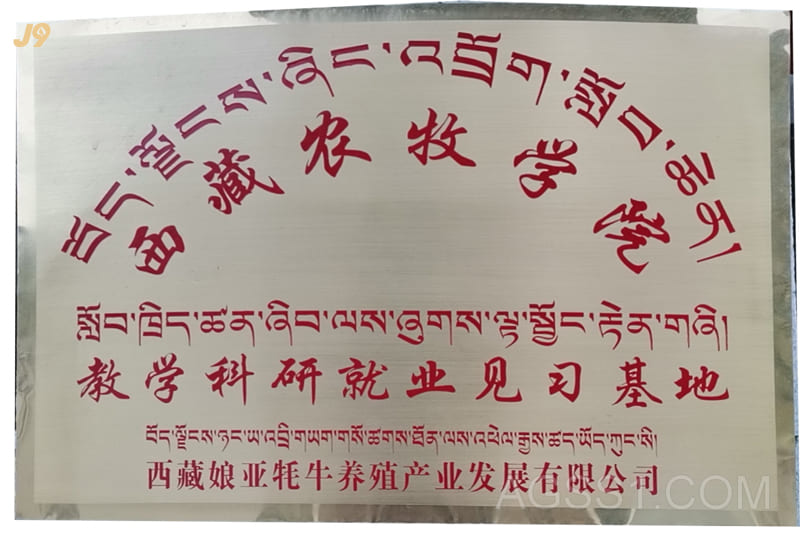 J9
བོད་ལྗོངས་ཞིང་འབྲོག་སློབ་ཆེན།
西藏农牧学院
སློབ་ཁྲིད་ཚན་ཞིབ་ལས་ཞུགས་ལྟ་སྦྱོང་རྟེན་གཞི།
教学科研就业见习基地
བོད་ལྗོངས་ཉང་ཡ་འབྲི་གཡག་གསོ་ཚགས་ཐོན་ལས་འཕེལ་རྒྱས་ཚད་ཡོད་ཀུང་སི།
西藏娘亚牦牛养殖产业发展有限公司
AGSST.COM